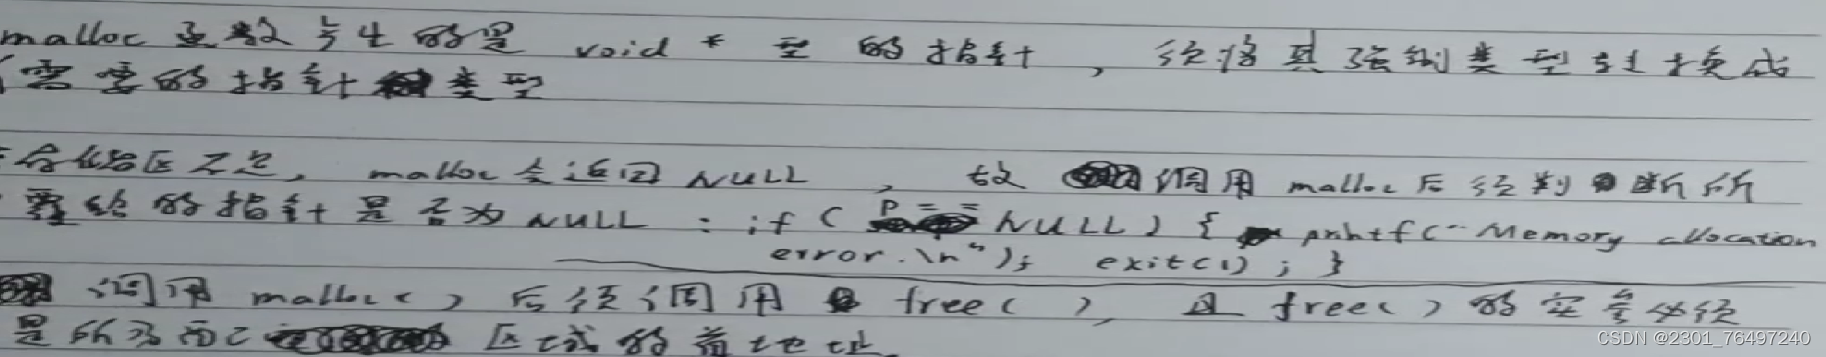 malloc函数产生的是 void * 型 的指针，须将其强制类型转换成
需要的指针类型
存储区不足，malloc会返回NULL，故调用malloc后须判断所
的指针是否为NULL：if( p == NULL ) { printf("Memory allocation
error.\n"); exit(1); }
调用malloc()后须调用free(), 且free()的实参必须
是所 区域的首地址.
CSDN @2301_76497240